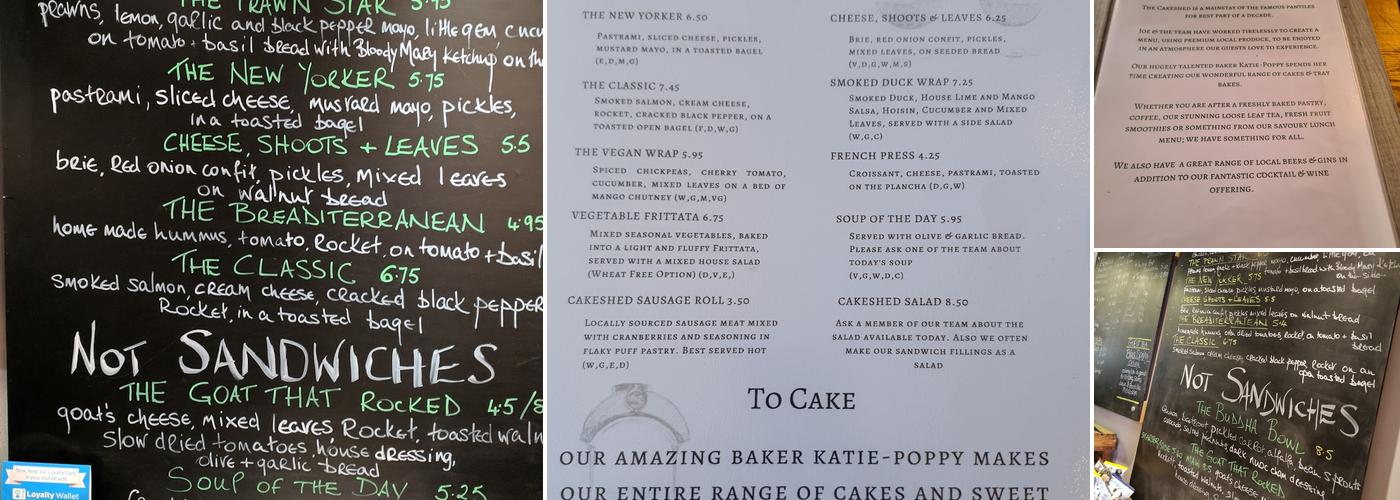 THE PRAWN STAR 5.95
prawns, lemon, garlic and black pepper mayo, little gem, cucu
on tomato + basil bread with Bloody Mary Ketchup on th
THE NEW YORKER 5.75
pastrami, sliced cheese, mustard mayo, pickles,
in a toasted bagel
CHEESE, SHOOTS + LEAVES 5.5
brie, Red onion confit, pickles, Mixed leaves
on walnut bread
THE BREADITERRANEAN 4.95
home made hummus, tomato, Rocket, on tomato + basil
THE CLASSIC 6.75
smoked salmon, cream cheese, cracked black pepper
Rocket, in a toasted bagel
NOT SANDWICHES
THE GOAT THAT ROCKED 4.5/8
goat's cheese, mixed leaves Rocket, toasted waln
Slow dried tomatoes, house dressing,
olive + garlic bread
SOUP OF THE DAY 5.25
Loyalty Wallet
THE NEW YORKER 6.50
PASTRAMI, SLICED CHEESE, PICKLES,
MUSTARD MAYO, IN A TOASTED BAGEL
(E,D,M,G)
THE CLASSIC 7.45
SMOKED SALMON, CREAM CHEESE,
ROCKET, CRACKED BLACK PEPPER, ON A
TOASTED OPEN BAGEL (F,D,W,G)
THE VEGAN WRAP 5.95
SPICED CHICKPEAS, CHERRY TOMATO,
CUCUMBER, MIXED LEAVES ON A BED OF
MANGO CHUTNEY (W,G,M,VG)
VEGETABLE FRITTATA 6.75
MIXED SEASONAL VEGETABLES, BAKED
INTO A LIGHT AND FLUFFY FRITTATA,
SERVED WITH A MIXED HOUSE SALAD
(WHEAT FREE OPTION) (D,V,E,)
CAKESHED SAUSAGE ROLL 3.50
LOCALLY SOURCED SAUSAGE MEAT MIXED
WITH CRANBERRIES AND SEASONING IN
FLAKY PUFF PASTRY. BEST SERVED HOT
(W,G,E,D)
CHEESE, SHOOTS & LEAVES 6.25
BRIE, RED ONION CONFIT, PICKLES,
MIXED LEAVES, ON SEEDED BREAD
(V,D,G,W,M,S)
SMOKED DUCK WRAP 7.25
SMOKED DUCK, HOUSE LIME AND MANGO
SALSA, HOISIN, CUCUMBER AND MIXED
LEAVES, SERVED WITH A SIDE SALAD
(W,G,C)
FRENCH PRESS 4.25
CROISSANT, CHEESE, PASTRAMI, TOASTED
ON THE PLANCHA (D,G,W)
SOUP OF THE DAY 5.95
SERVED WITH OLIVE & GARLIC BREAD.
PLEASE ASK ONE OF THE TEAM ABOUT
TODAY'S SOUP
(V,G,W,D,C)
CAKESHED SALAD 8.50
ASK A MEMBER OF OUR TEAM ABOUT THE
SALAD AVAILABLE TODAY. ALSO WE OFTEN
MAKE OUR SANDWICH FILLINGS AS A
SALAD
TO CAKE
OUR AMAZING BAKER KATIE-POPPY MAKES
OUR ENTIRE RANGE OF CAKES AND SWEET
THE CAKESHED IS A MAINSTAY OF THE FAMOUS PANTILES
FOR BEST PART OF A DECADE.
JOE & THE TEAM HAVE WORKED TIRELESSLY TO CREATE A
MENU, USING PREMIUM LOCAL PRODUCE, TO BE ENJOYED
IN AN ATMOSPHERE OUR GUESTS LOVE TO EXPERIENCE.
OUR HUGELY TALENTED BAKER KATIE-POPPY SPENDS HER
TIME CREATING OUR WONDERFUL RANGE OF CAKES & TRAY
BAKES.
WHETHER YOU ARE AFTER A FRESHLY BAKED PASTRY,
COFFEE, OUR STUNNING LOOSE LEAF TEA, FRESH FRUIT
SMOOTHIES OR SOMETHING FROM OUR SAVOURY LUNCH
MENU; WE HAVE SOMETHING FOR ALL.
WE ALSO HAVE A GREAT RANGE OF LOCAL BEERS & GINS IN
ADDITION TO OUR FANTASTIC COCKTAIL & WINE
OFFERING.
THE PRAWN STAR
THE NEW YORKER 5.75
pastrami, sliced cheese, pickles, mustard mayo, on a toasted bagel
CHEESE SHOOTS + LEAVES 5.5
Brie, Red onion confit pickles mixed leaves on walnut bread
THE BREADITERRANEAN
bread
THE CLASSIC 6.75
smoked salmon cream cheese, cracked black pepper Rocket on an
open toasted bagel
NOT SANDWICHES
THE BUDDHA BOWL 8.5
THE GOAT THAT ROCKED